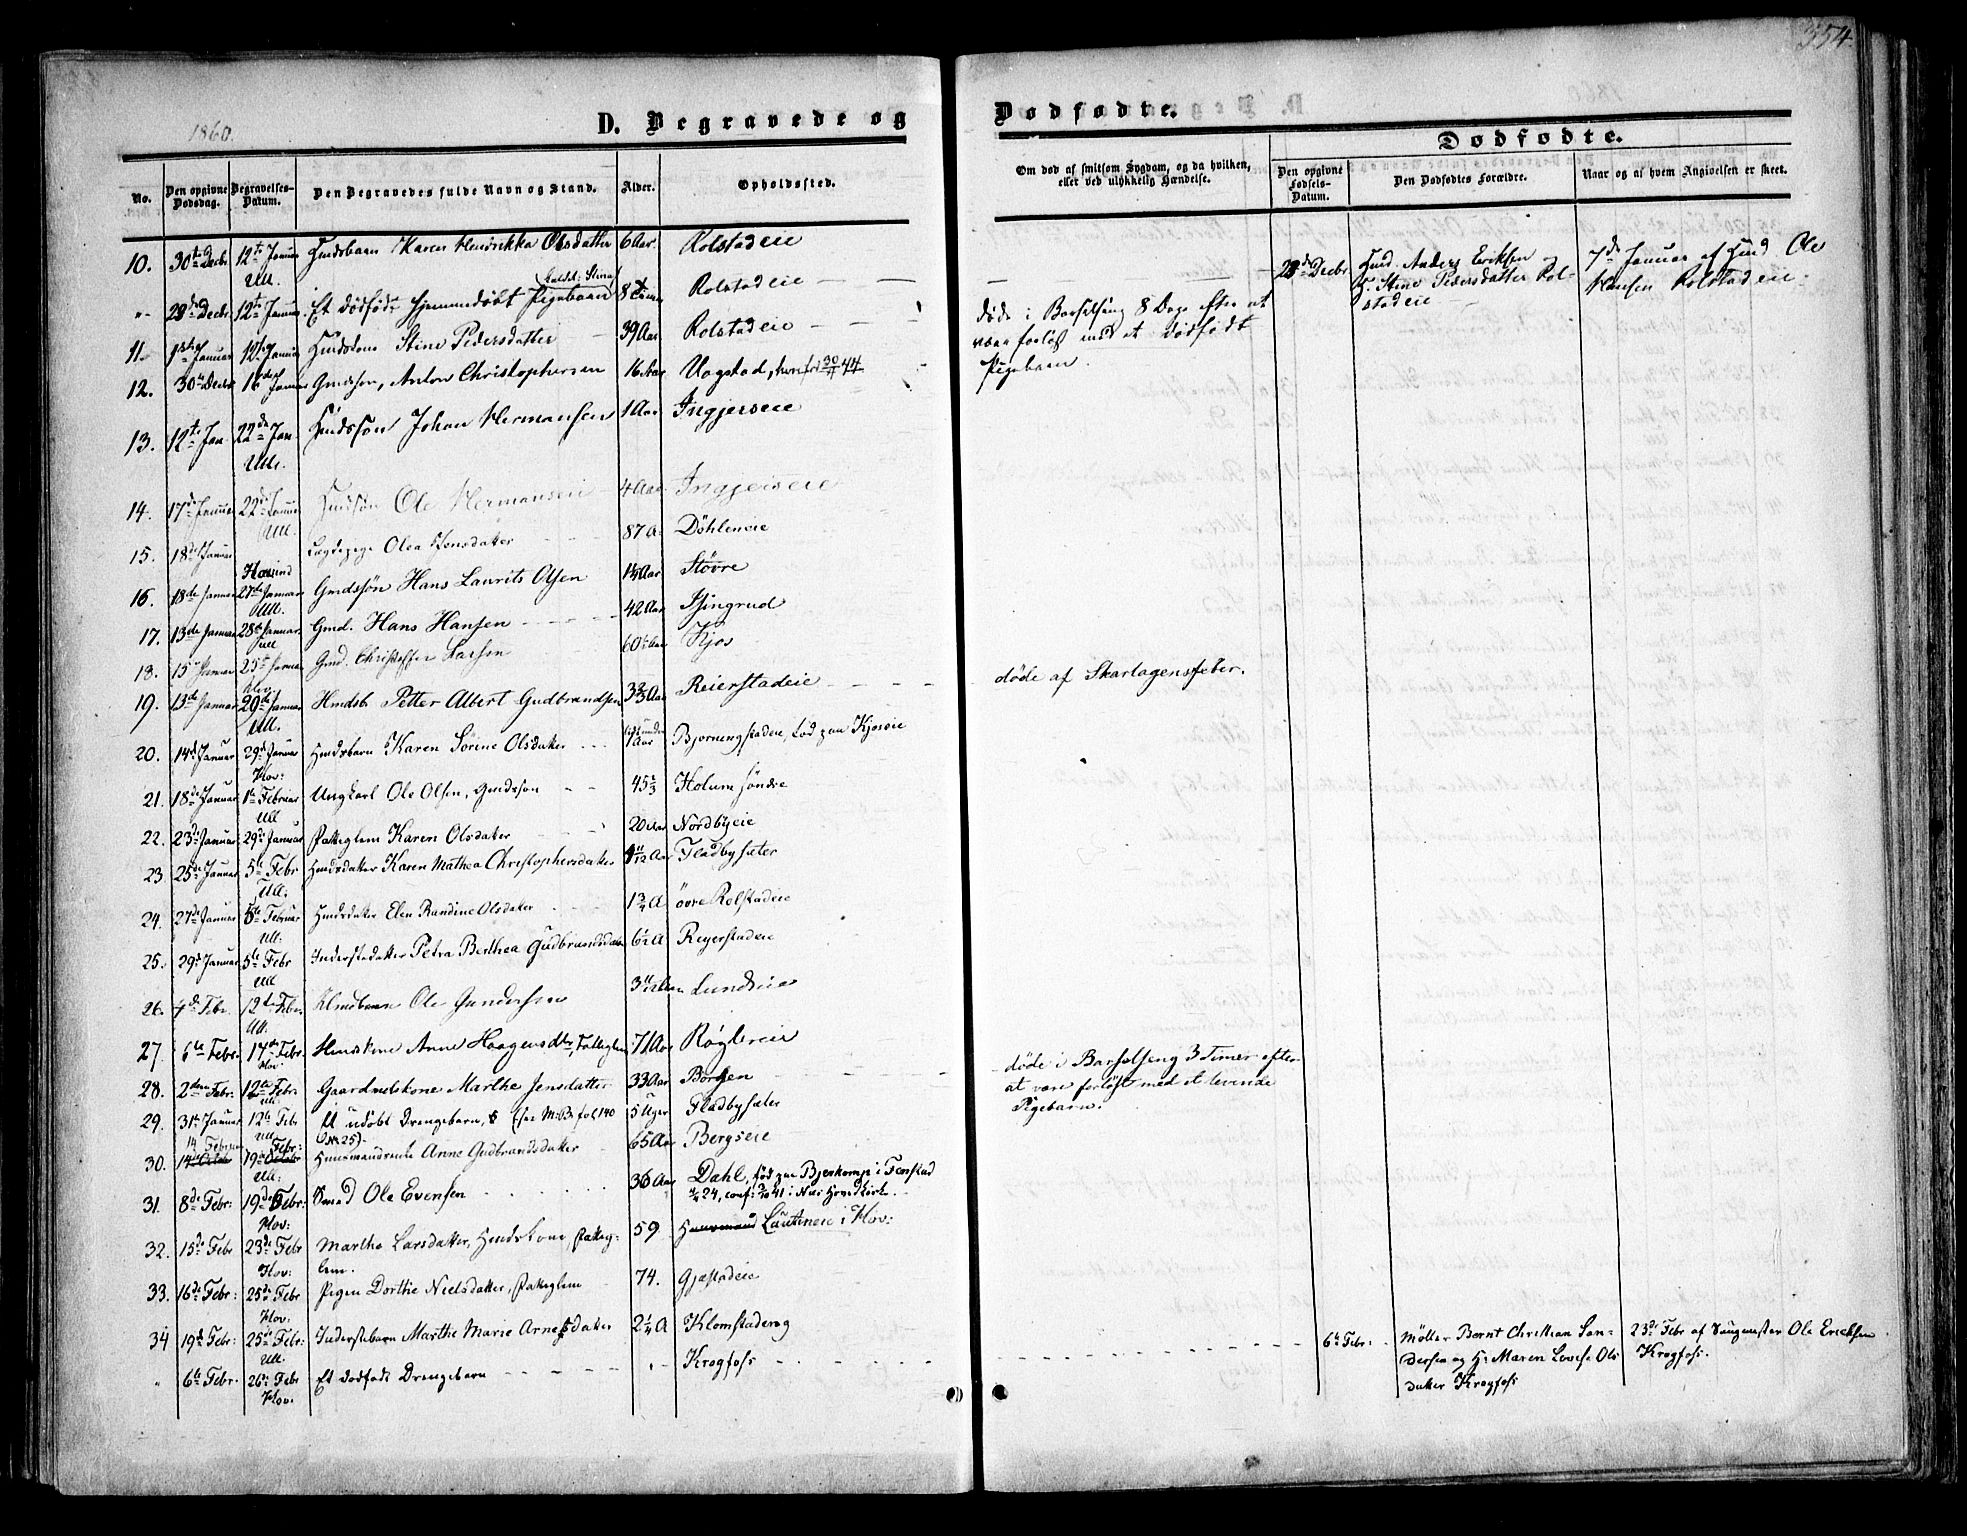 354.
1860.
D. Begravede og
Dødfødte.
Dødfødte.
No.
Den opgivne Dødsdag.
Begravelses-Datum.
Den Begravedes fulde Navn og Stand.
Alder.
Opholdssted.
Om død af smitsom Sygdom, og da hvilken,
eller ved ulykkelig Hændelse.
Den opgivne Fødsels-Datum.
Den Dødfødtes Forældre.
Naar og af hvem Angivelsen er skeet.
10. 30te Decbr 12te Januar Ull. Hmdsbarn Karen Hendrikka Olsdatter 6 Aar. Rolstadeie
"- 29de Decbr 12te Januar Et dødfødt hjemmedøbt Pigebarn Rolstadeie
28de Decbr Hmd. Anders Eriksen og
K. Stine Pedersdatter Rol-
stadeie
7de Januar af Hmd Ole
Hansen Rolstadeie
11. 1ste Januar 12te Januar Hmdskone Stine Pedersdatter 39 Aar Rolstadeie
døde i Barselseng 8 Dage efter at
være forløst med et dødfødt
Pigebarn.
12. 30te Decbr Januar Gmdssøn, Anton Christophersen 16 Aar Vogstad,
13. 12te Jan. 22de Jan Ull. Hmdssøn Johan Hermansen 1 Aar Ingjerseie
14. 17de Januar 22de Januar Ull. Hmdssøn Ole Hermansen 4 Aar Ingjerseie
15. 18de Januar Lægdepige Olea Jonsdatter 87 A. Døhleneie
16. 18de Januar 27de Januar Ull. Gmdssøn Hans Laurits Olsen Aar Støvre
17. 13de Januar 28de Januar Ull Gmd. Hans Hansen 42 Aar
18. 15de Januar 25de Januar Hov. Gmd. Christoffer Larsen 60 Aar Kjos
19. 13de Januar 20de Januar Ull. Hmdsb Petter Albert Gudbrandsen 3 Aar Reierstadeie
døde af Skarlagensfeber.
20. 14de Januar 29de Januar Hov: Hmdsbarn Karen Sorine Olsdatter Aar Bjorningstadeie, Kjoseie
21. 18de Januar 1ste Februar Ull Ungkarl Ole Olsen, Gmdssøn 45 Holum søndre
22. 23de Januar 29de Januar Fattiglem Karen Olsdatter 20 Aar Nordbyeie
23. 25de Januar 5te Febr Ull. Hmdsdatter Karen Mathea Christophersdatter Aar Fladbysæter
24. 27de Januar 5te Februar Ull. Hmdsdatter Elen Randine Olsdatter A øvre Rolstadeie
25. 29de Januar 5te Febr Ull Inderstdatter Petra Berthea Gudbrandsdatter 6½ A Reyerstadeie
26. 4de Febr. 12te Febr. Ull. Hmdbarn Ole Gundersen 3 Lundseie
27 6te Febr. 17de Febr. Hov. Hmdskone Anne Haagensdtr, Fatteglem 71 Aar Røglereie
28. 2den Febr: 12te Febr. Ull. Gaardmdskone Marthe Jensdatter 33 Aar Borgen
døde i Barselseng 3 Timer efter
at være forløst med et levende
Pigebarn.
29. 31te Januar 12te Febr Ull Et udøbt Drengebarn, (see MB. fol. 140
No 25). 5 Uger Fladbysæter
30. 14 Februar 19de Febr: Ull. Huusmandsenke Anne Gudbrandsdatter 65 Aar Bergseie
31. 8de Febr: 19de Febr: Hov: Smed Ole Evensen 36 Aar Dahl, fød paa Bjerkomp i Fenstad
24, conf: 41 i Næs Hovedkirke.
32. 15de Febr 23de Febr Hov: Marthe Larsdatter, Hmdskone, Fatteg-
lem. 59 Huusmand Lautneie i Hov:
33. 16de Febr: 25de Febr Hov: Pigen Dorthe Nielsdatter, Fatteglem 74. Gjestadeie
34 19de Febr: 25de Febr: Ull. Inderstebarn Marthe Marie Arnesdatter 2¼ A Klomstaderog
" 6te Febr. 26de Febr Hov. Et dødfødt Drengebarn "- Krogfoss
6te Febr: Møller Bernt Christian San-
dersen og H: Maren Lovise Ols
datter Krogfoss
23de Febr af Saugmester Ole Ericksen
Krogfoss.